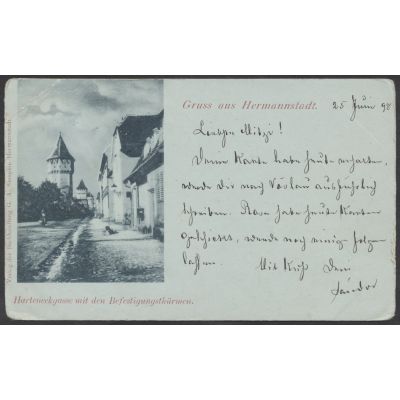 Gruss aus Hermannstadt.
25 Juni 98
Liebste Mitzi!
Deine Karte habe heute erhalten,
werde Dir nach Vöslau ausführlich
schreiben. Rosa habe heute Karten
geschickt, werde noch einige folgen
lassen.
Mit Kuß Dein
Sándor
Harteneckgasse mit den Befestigungsthürmen.
Verlag der Buchhandlung G. A. Seraphin, Hermannstadt.